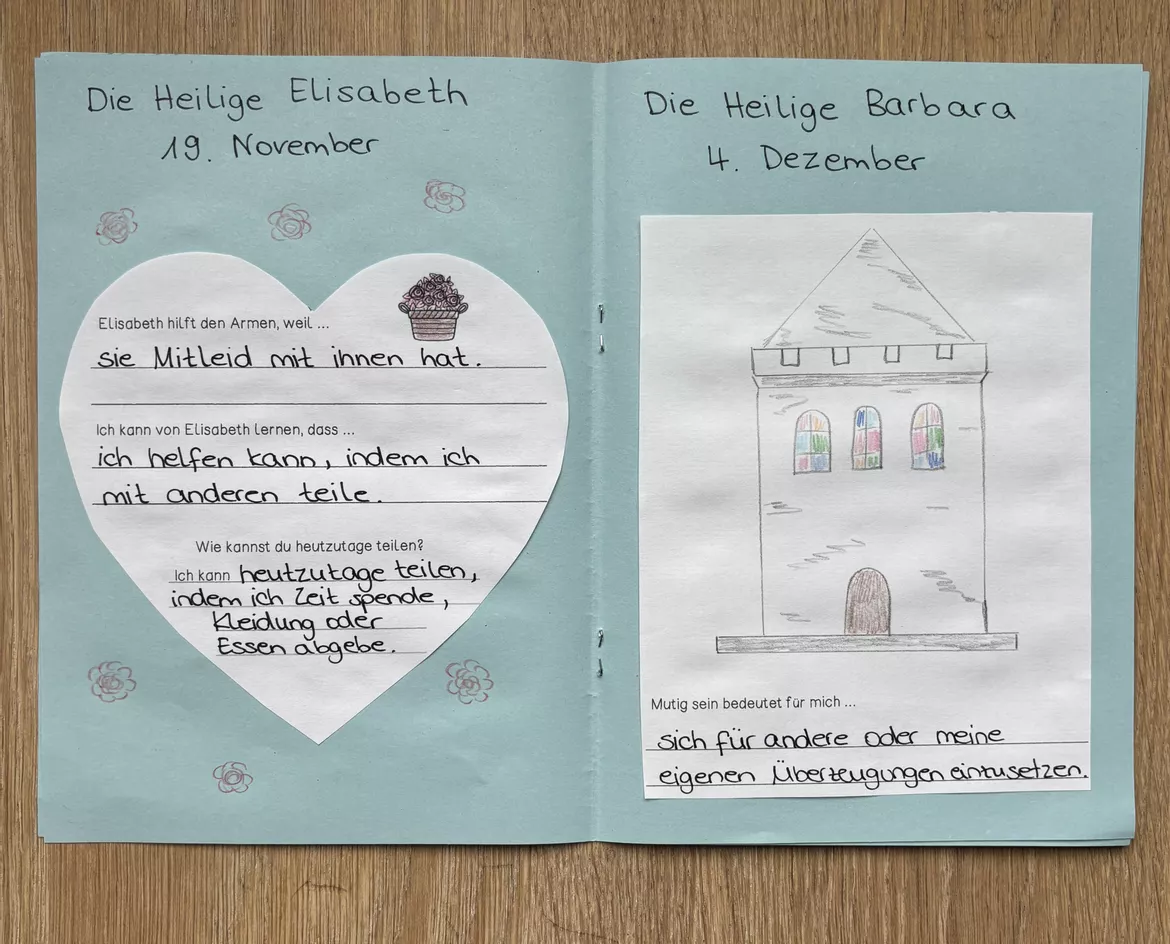 Die Heilige Elisabeth
19. November
Elisabeth hilft den Armen, weil ...
sie Mitleid mit ihnen hat.
Ich kann von Elisabeth lernen, dass ...
ich helfen kann, indem ich
mit anderen teile.
Wie kannst du heutzutage teilen?
Ich kann heutzutage teilen,
indem ich Zeit spende,
Kleidung oder
Essen abgebe.
Die Heilige Barbara
4. Dezember
Mutig sein bedeutet für mich ...
sich für andere oder meine
eigenen Überzeugungen einzusetzen.